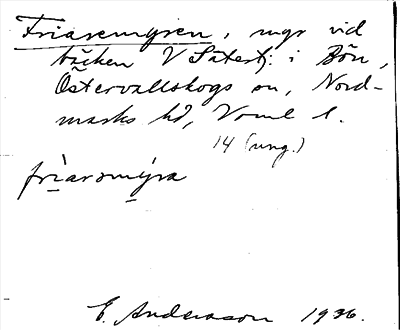 Friaremyren, mgr vid
bäcken V Säterbj. i Bön,
Östervallskogs sn, Nord-
marks hd, Vrml l.
14 (ung.)
frìaromýra
E. Andersson 1936.